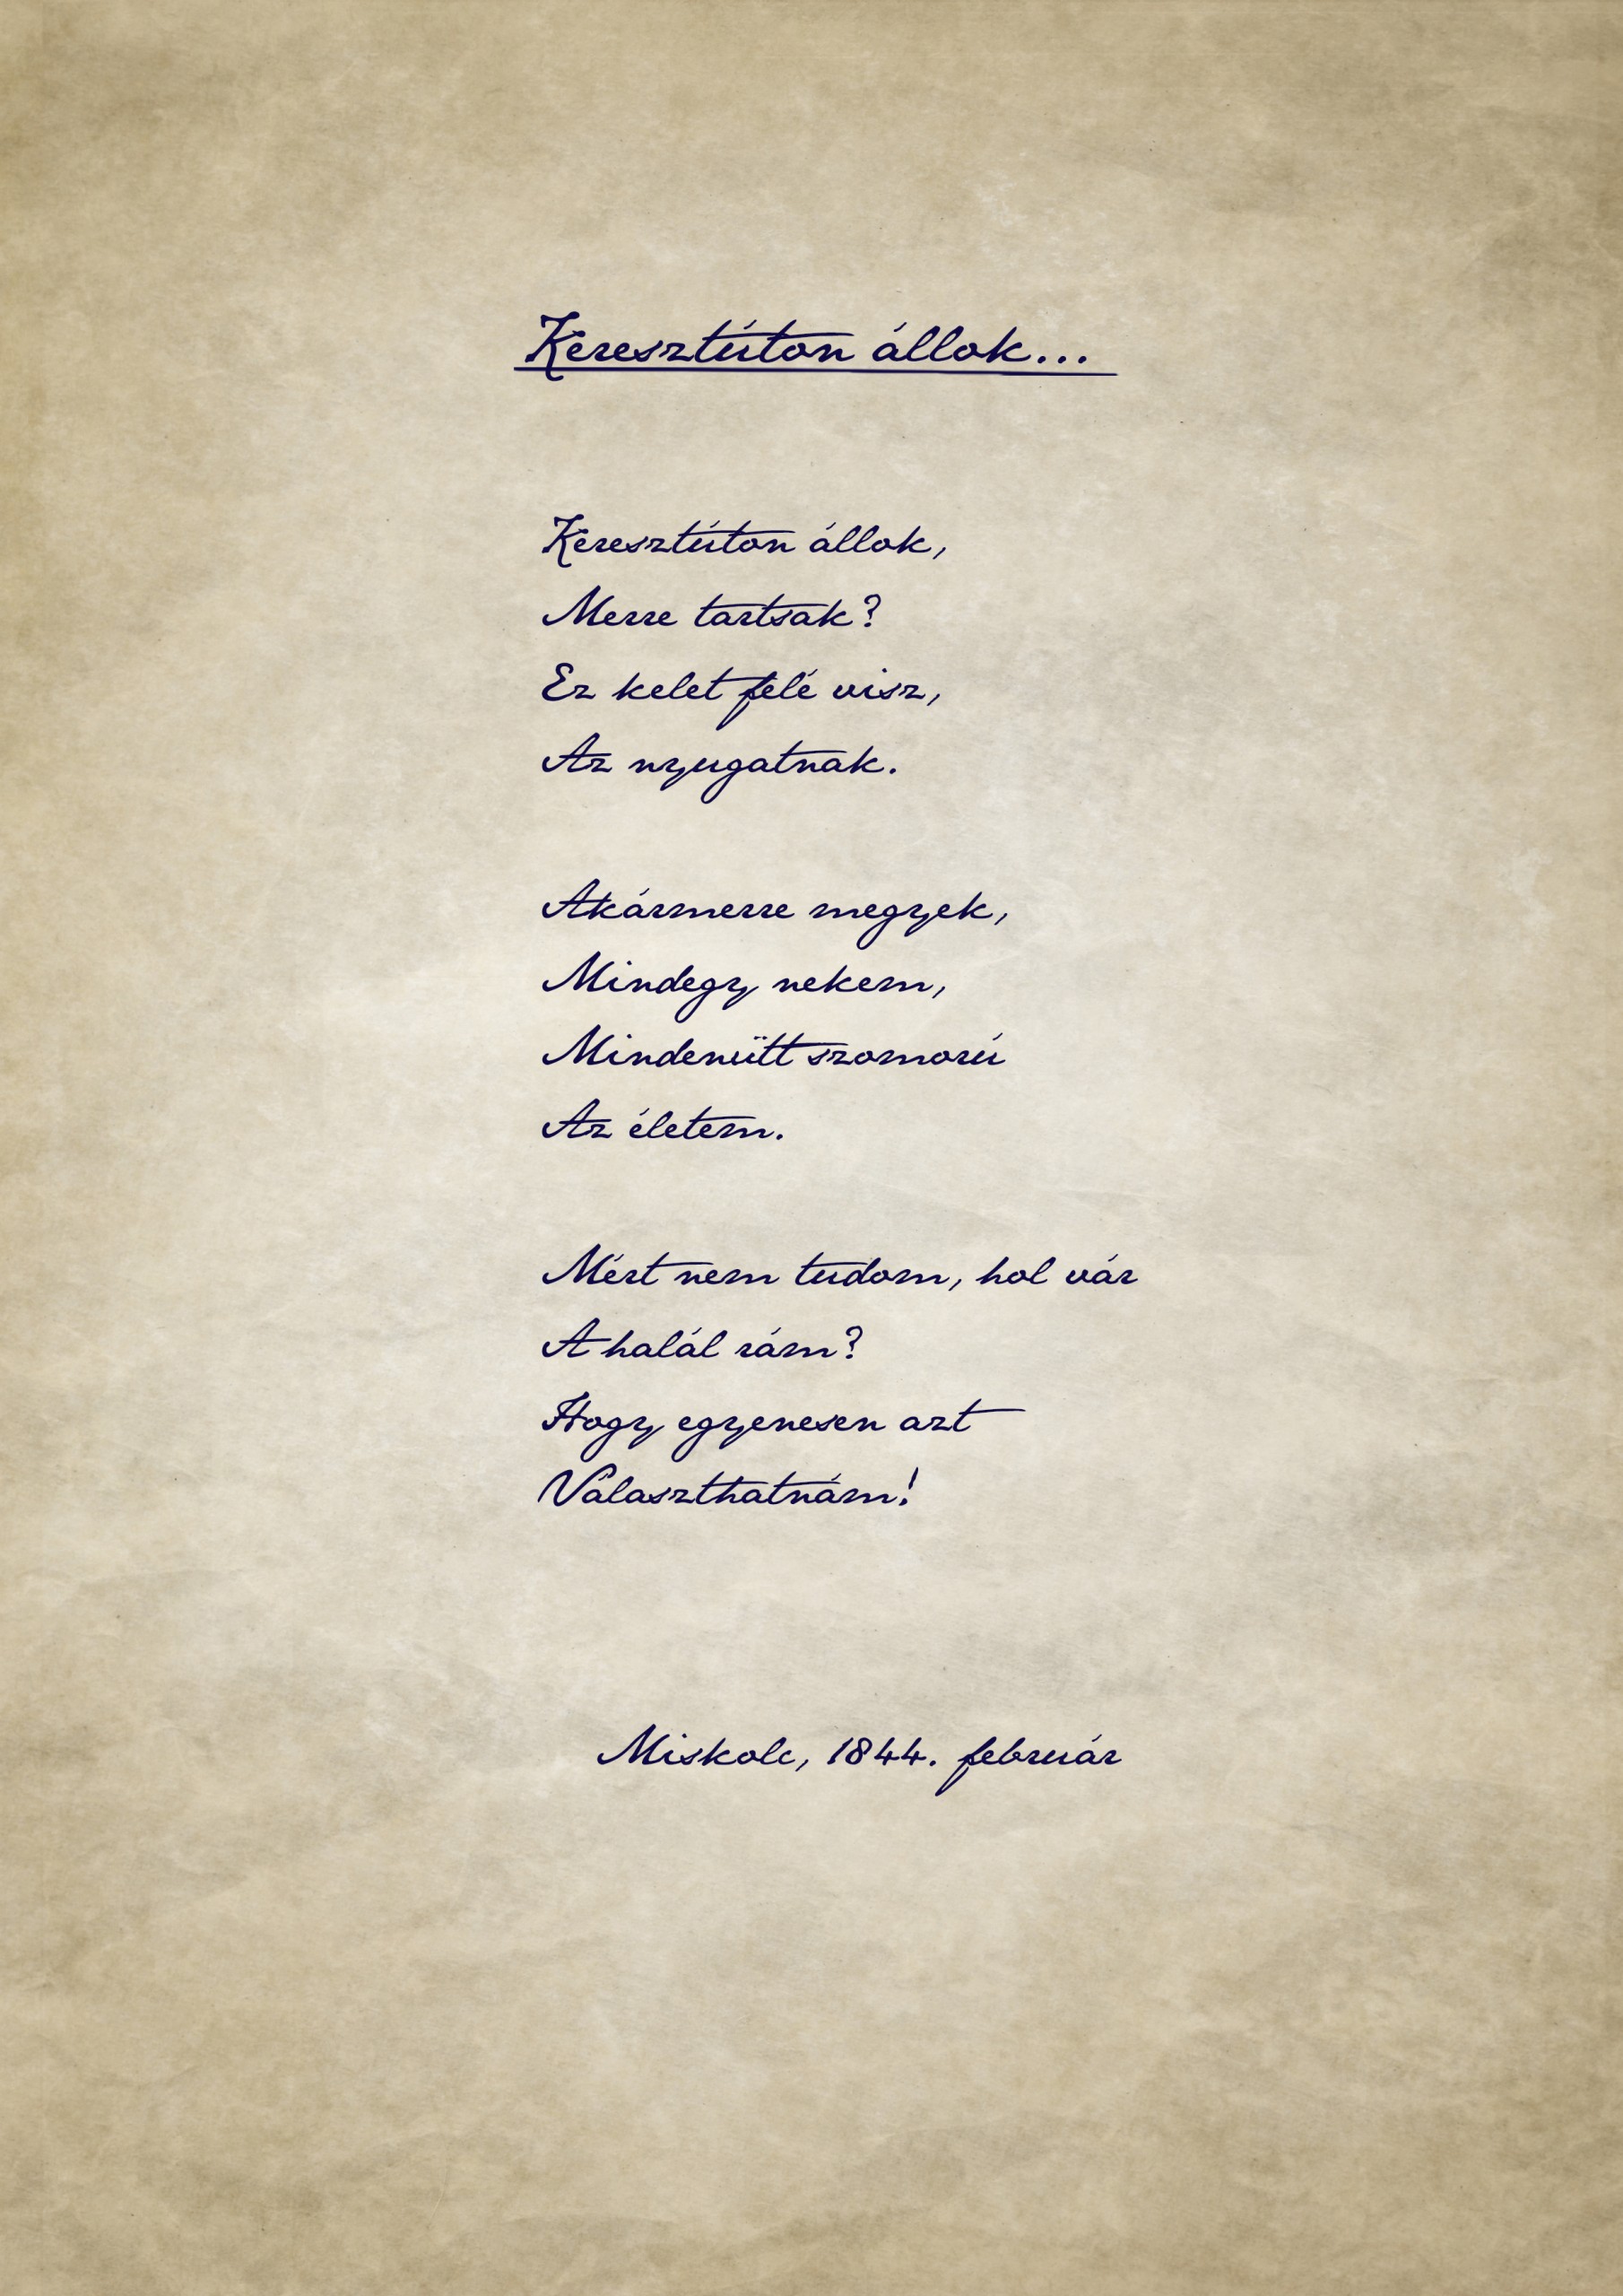 Keresztúton állok...
Keresztúton állok,
Merre tartsak?
Ez kelet felé visz,
Az nyugatnak.
Akármerre megyek,
Mindegy nekem,
Mindenütt szomorú
Az életem.
Mért nem tudom, hol vár
A halál rám?
Hogy egyenesen azt
Választhatnám!
Miskolc, 1844. február